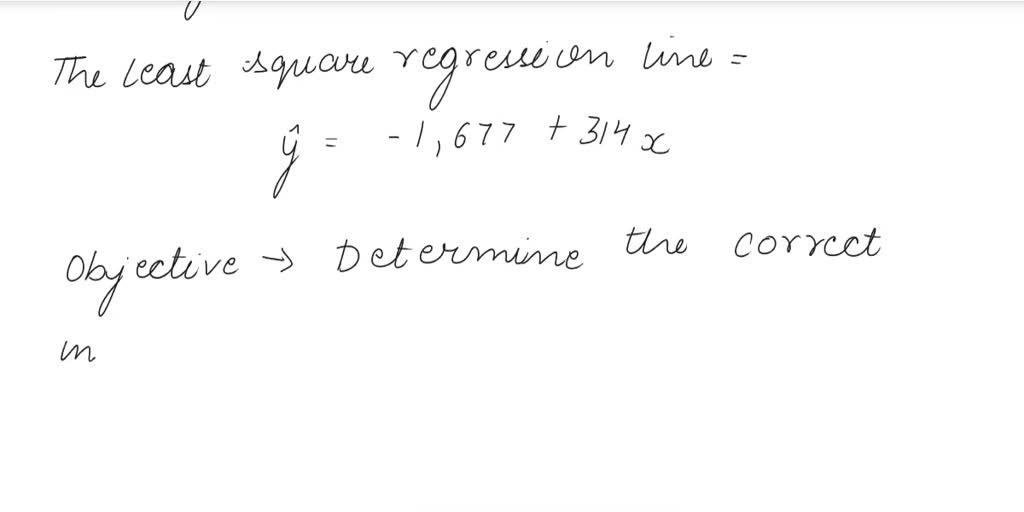 The least square regression line =
ŷ = -1,677 + 314x
Objective → Determine the correct
in